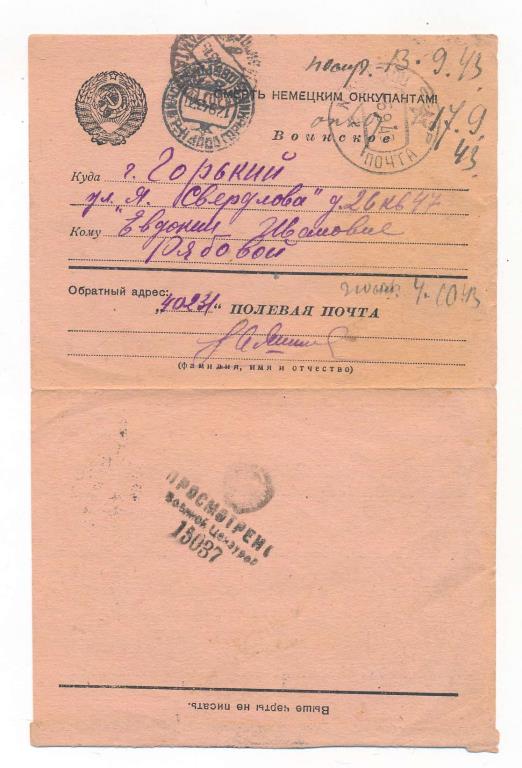 13.9.43
СМЕРТЬ НЕМЕЦКИМ ОККУПАНТАМ!
17.9.
43
Воинское
ПОЧТА
Куда г. Горький
ул. Я. Свердлова" д. 26 кв 47
Кому "Евдокии Ивановне
Рябовой
4.10.43
Обратный адрес:
"40231" ПОЛЕВАЯ ПОЧТА
(фамилия, имя и отчество)
ПРОСМОТРЕНО
Военной Цензурой
15037
Выше черты не писать.